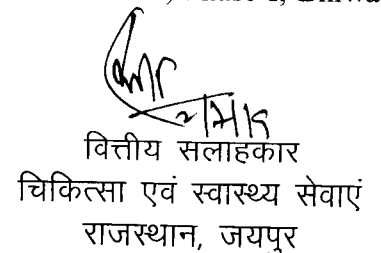 वित्तीय सलाहकार
चिकित्सा एवं स्वास्थ्य सेवाएं
राजस्थान, जयपुर